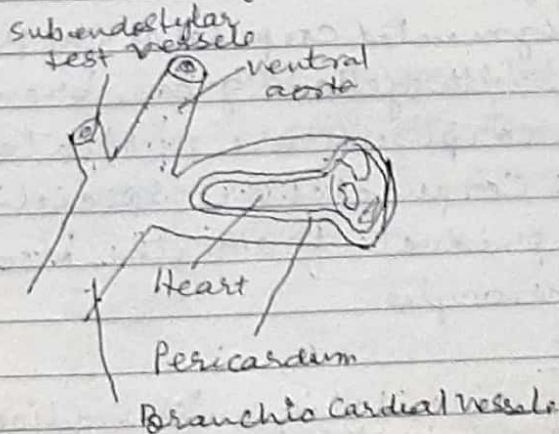 subendostylar
test vessele
ventral
aorta
Heart
Pericardium
Branchio Cardial Vessele